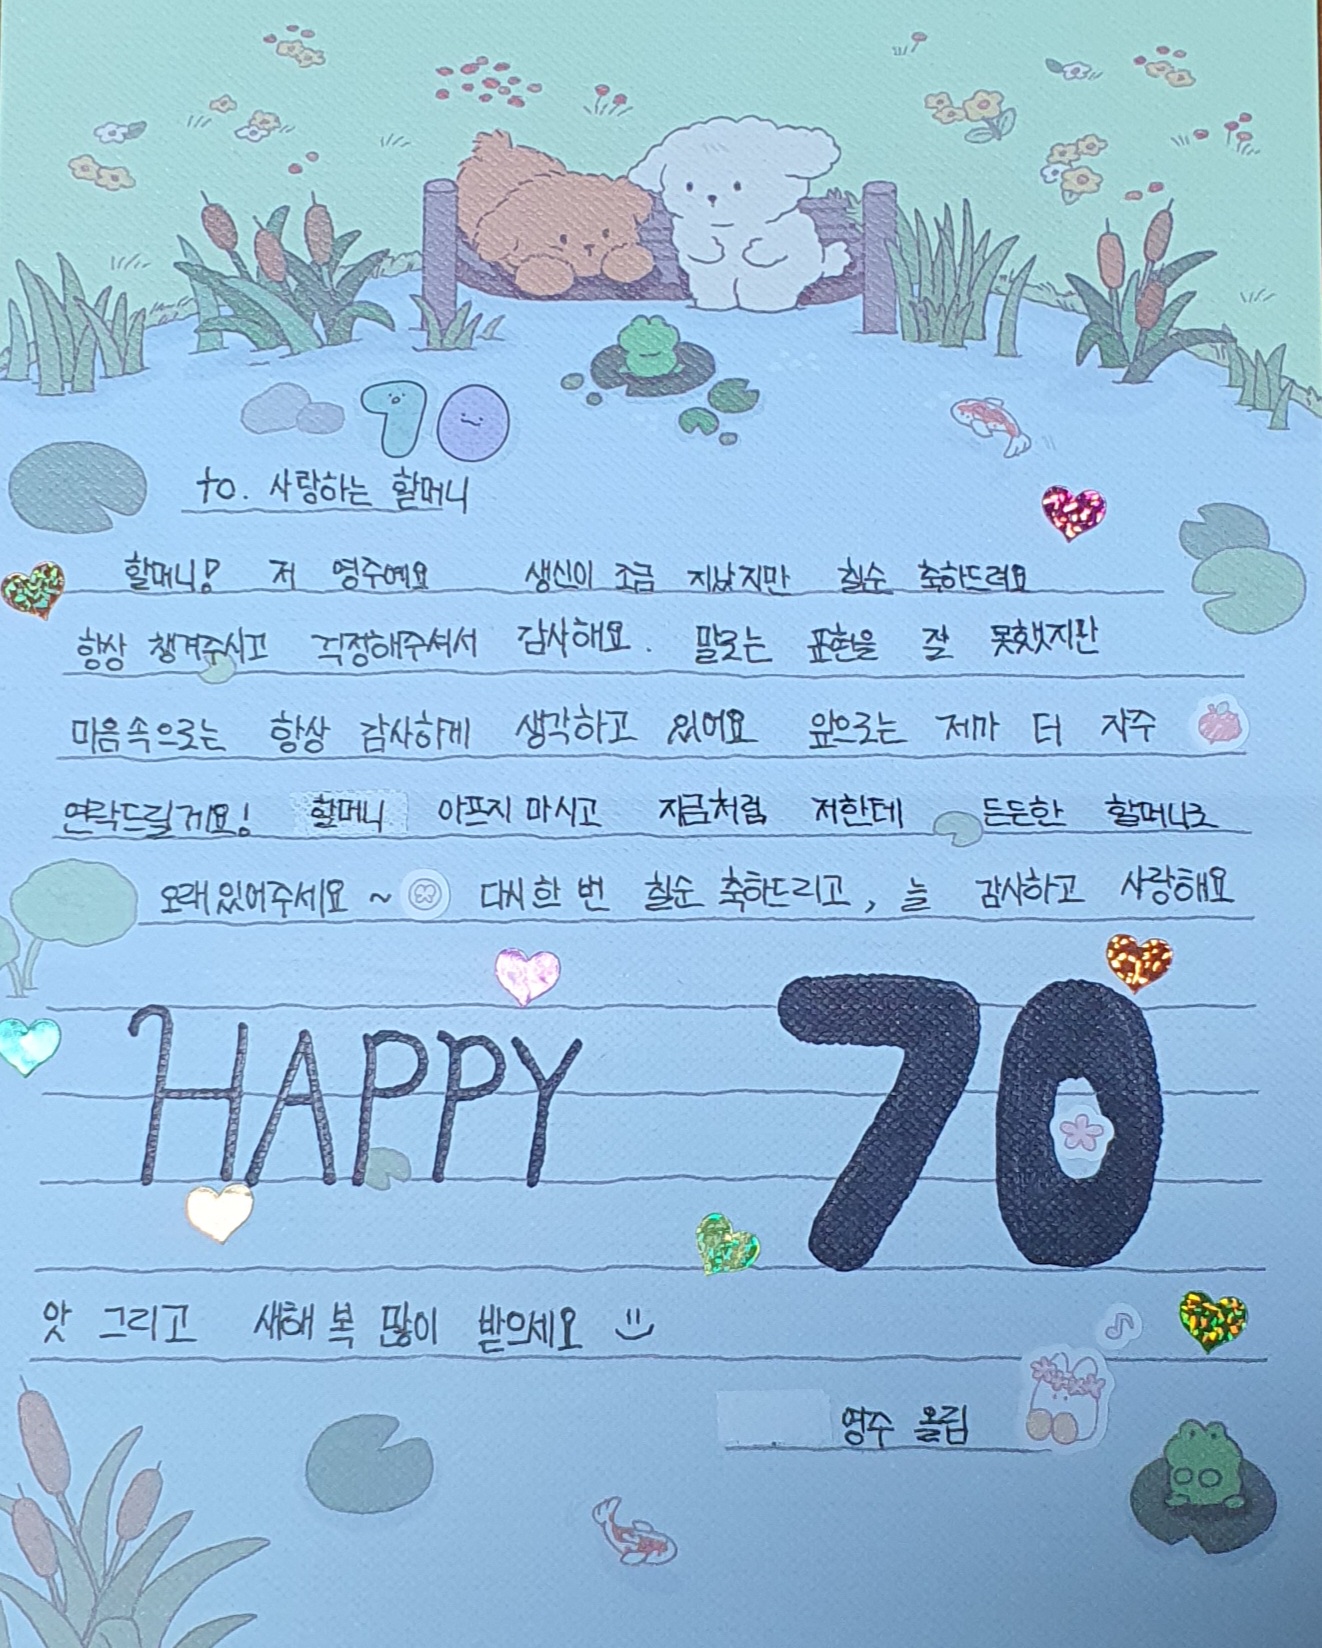 70
to. 사랑하는 할머니
할머니! 저 영주예요 생신이 조금 지났지만 칠순 축하드려요
항상 챙겨주시고 걱정해주셔서 감사해요. 말로는 표현을 잘 못했지만
마음속으로는 항상 감사하게 생각하고 있어요 앞으로는 제가 더 자주
연락드릴게요! 할머니 아프지 마시고 지금처럼 저한테 든든한 할머니로
오래 있어주세요 ~ 다시 한 번 칠순 축하드리고, 늘 감사하고 사랑해요
HAPPY 70
앗 그리고 새해 복 많이 받으세요
영주 올림